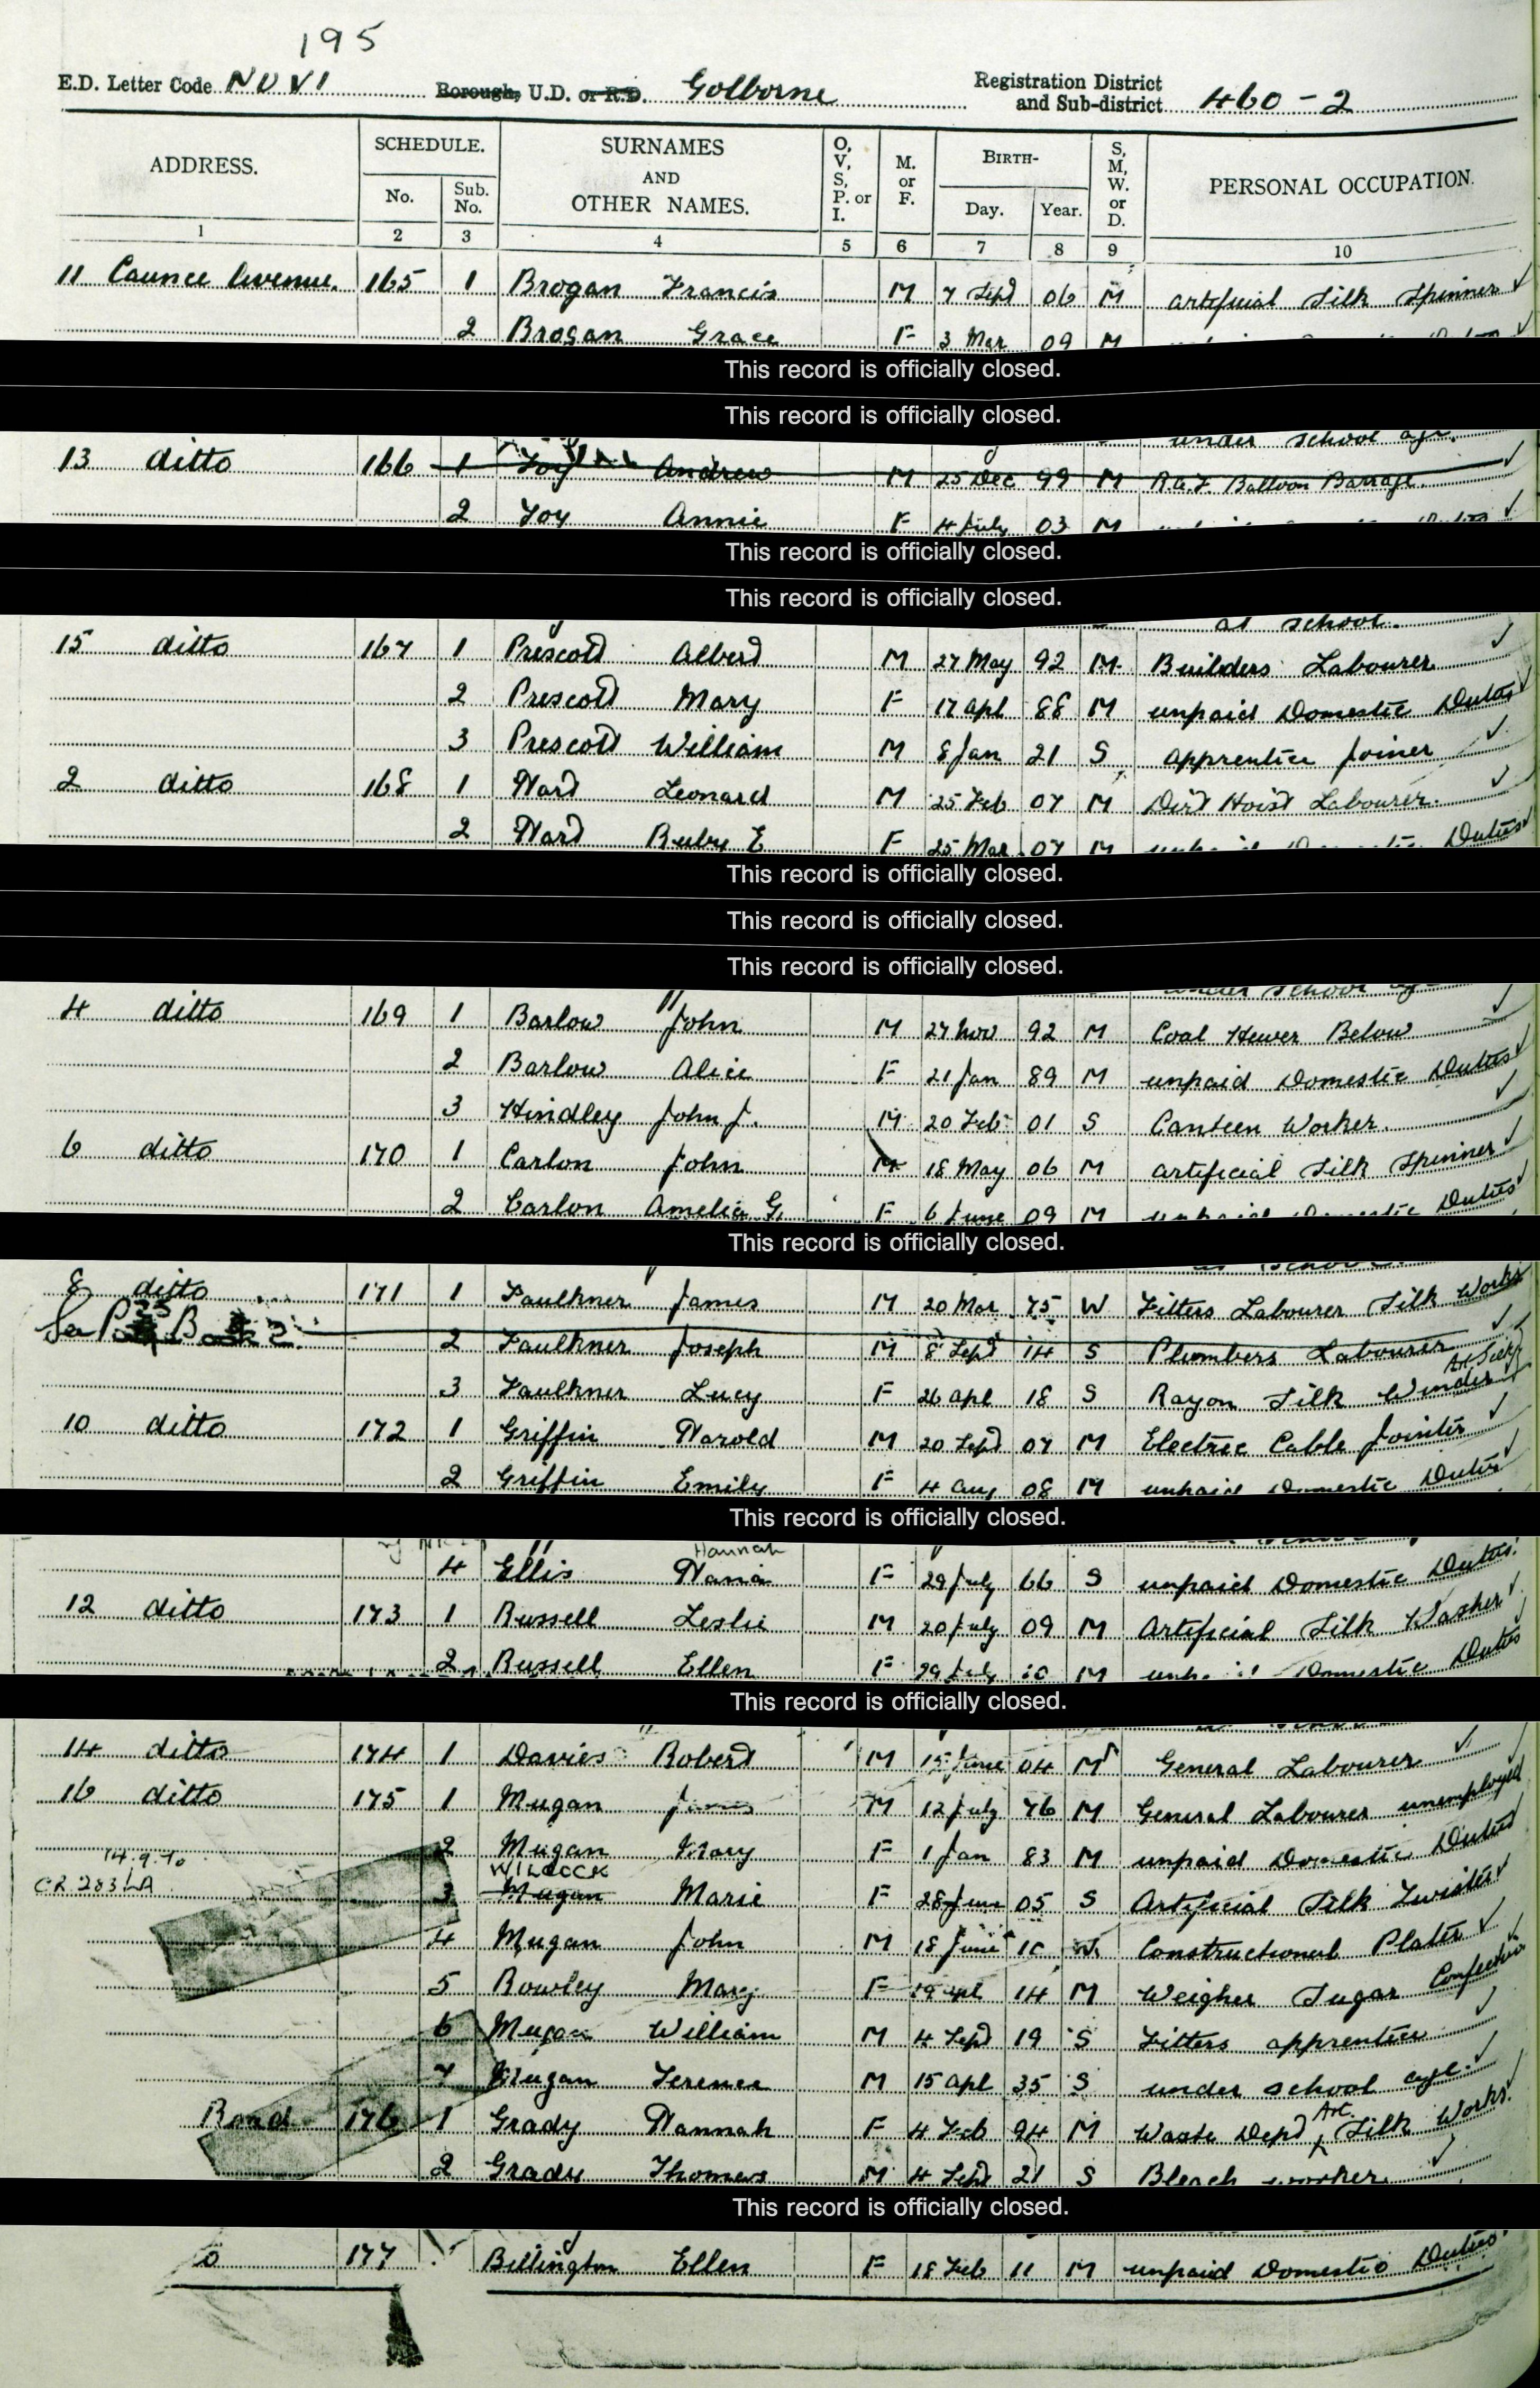 195
E.D. Letter Code NUVI Borough, U.D. or R.D. Golborne Registration District and Sub-district 460-2
ADDRESS. SCHEDULE. No. Sub. No. SURNAMES AND OTHER NAMES. O, V, S, P. or I. M. or F. BIRTH- Day. Year. S, M, W. or D. PERSONAL OCCUPATION.
1 2 3 4 5 6 7 8 9 10
11 Caunce Avenue. 165 1 Brogan Francis M 7 Sept 06 M artificial Silk Spinner
2 Brogan Grace F 3 Mar 09 M
This record is officially closed.
This record is officially closed.
under school age.
13 ditto 166 1 Foy Andrew M 25 Dec 99 M R.A.F. Balloon Barrage.
2 Foy Annie F 4 July 03 M Duties
This record is officially closed.
This record is officially closed.
at school.
15 ditto 167 1 Prescott Albert M 27 May 92 M Builders Labourer
2 Prescott Mary F 17 Apl 88 M unpaid Domestic Duties
3 Prescott William M 8 Jan 21 S apprentice Joiner
2 ditto 168 1 Ward Leonard M 25 Feb 07 M Dirt Hoist Labourer.
2 Ward Ruby E F 25 Mar 07 M unpaid Domestic Duties
This record is officially closed.
This record is officially closed.
This record is officially closed.
under school age
4 ditto 169 1 Barlow John M 27 Nov 92 M Coal Hewer Below
2 Barlow Alice F 21 Jan 89 M unpaid Domestic Duties
3 Hindley John J. M 20 Feb 01 S Canteen Worker.
6 ditto 170 1 Carlon John M 18 May 06 M artificial Silk Spinner
2 Carlon Amelia G. F 6 June 09 M unpaid Domestic Duties
This record is officially closed.
at school.
8 ditto 171 1 Faulkner James M 20 Mar 75 W Fitters Labourer Silk Works
See 2 Faulkner Joseph M 8 Sept 14 S Plumbers Labourer
3 Faulkner Lucy F 26 Apl 18 S Rayon Silk Winder
10 ditto 172 1 Griffin Harold M 20 Sept 07 M Electric Cable Jointer
2 Griffin Emily F 4 Aug 08 M unpaid Domestic Duties
This record is officially closed.
Hannah
4 Ellis F 29 July 66 S unpaid Domestic Duties.
12 ditto 173 1 Russell Leslie M 20 July 09 M Artificial Silk Washer
2 Russell Ellen F 29 July 10 M unpaid Domestic Duties
This record is officially closed.
14 ditto 174 1 Davies Robert M 15 June 04 M General Labourer
16 ditto 175 1 Mugan James M 12 July 76 M General Labourer unemployed
2 Mugan Mary F 1 Jan 83 M unpaid Domestic Duties
14.9.70 WILCOCK
CR 283 LA 3 Mugan Marie F 28 June 05 S Artificial Silk Twister
4 Mugan John M 18 June 10 W. Constructional Plater
5 Rowley Mary F 19 Apl 14 M Weigher Sugar
6 Mugan William M 4 Sept 19 S Fitters apprentice
7 Mugan Terence M 15 Apl 35 S under school age.
Road 176 1 Grady Hannah F 4 Feb 94 M Waste Dept Art. Silk Works.
2 Grady Thomas M 4 Sept 21 S Bleach worker.
This record is officially closed.
o 177 Billington Ellen F 18 Feb 11 M unpaid Domestic Duties.